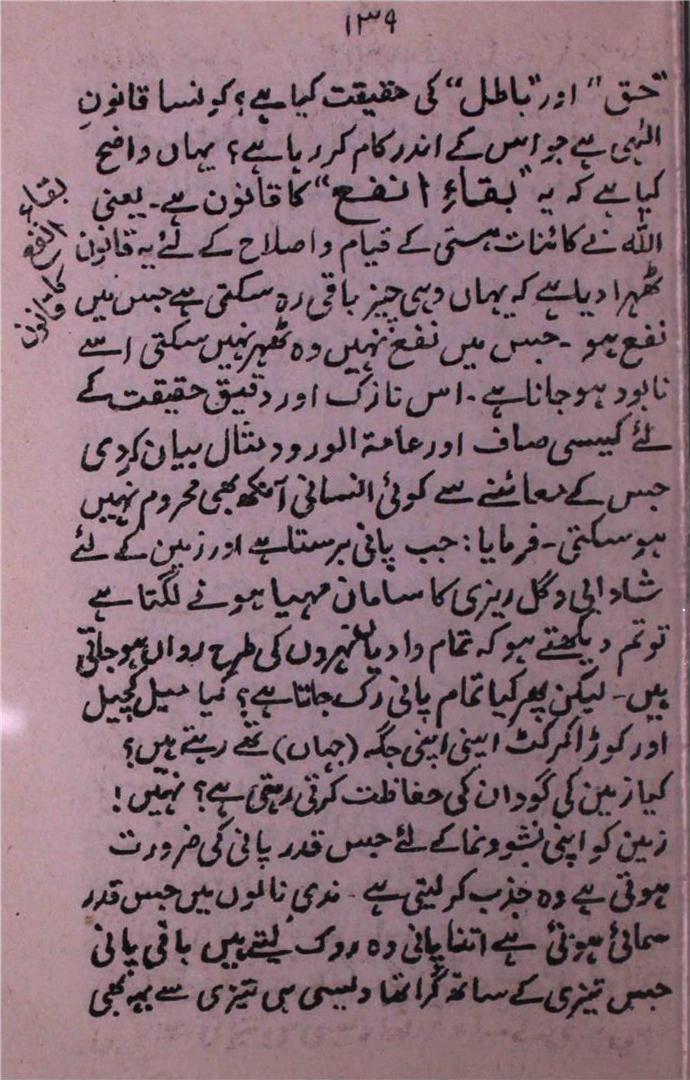 ۱۳۹
"حق" اور "باطل" کی حقیقت کیا ہے؟ کونسا قانونِ
الٰہی ہے جو اس کے اندر کام کر رہا ہے؟ یہاں واضح
کیا ہے کہ یہ "بقاءِ انفع" کا قانون ہے۔ یعنی
اللہ نے کائنات ہستی کے قیام و اصلاح کے لئے یہ قانون
ٹھہرا دیا ہے کہ یہاں وہی چیز باقی رہ سکتی ہے جس میں
نفع ہو۔ جس میں نفع نہیں وہ ٹھہر نہیں سکتی اسے
نابود ہو جانا ہے۔ اس نازک اور دقیق حقیقت کے
لئے کیسی صاف اور عامۃ الورود مثال بیان کر دی
جس کے معائنے سے کوئی انسانی آنکھ بھی محروم نہیں
ہو سکتی۔ فرمایا: جب پانی برستا ہے اور زمین کے لئے
شادابی و گل ریزی کا سامان مہیا ہونے لگتا ہے
تو تم دیکھتے ہو کہ تمام وادیاں نہروں کی طرح رواں ہو جاتی
ہیں۔ لیکن پھر کیا تمام پانی رک جاتا ہے؟ کیا میل کچیل
اور کوڑا کرکٹ اپنی اپنی جگہ (جہاں) تھے رہتے ہیں؟
کیا زمین کی گود ان کی حفاظت کرتی رہتی ہے؟ نہیں!
زمین کو اپنی نشوونما کے لئے جس قدر پانی کی ضرورت
ہوتی ہے وہ جذب کر لیتی ہے۔ ندی نالوں میں جس قدر
سمائی ہوتی ہے اتنا پانی وہ روک لیتے ہیں باقی پانی
جس تیزی کے ساتھ گرا تھا ویسی ہی تیزی سے بہہ بھی
بقاءِ
انفع
کا
قانون